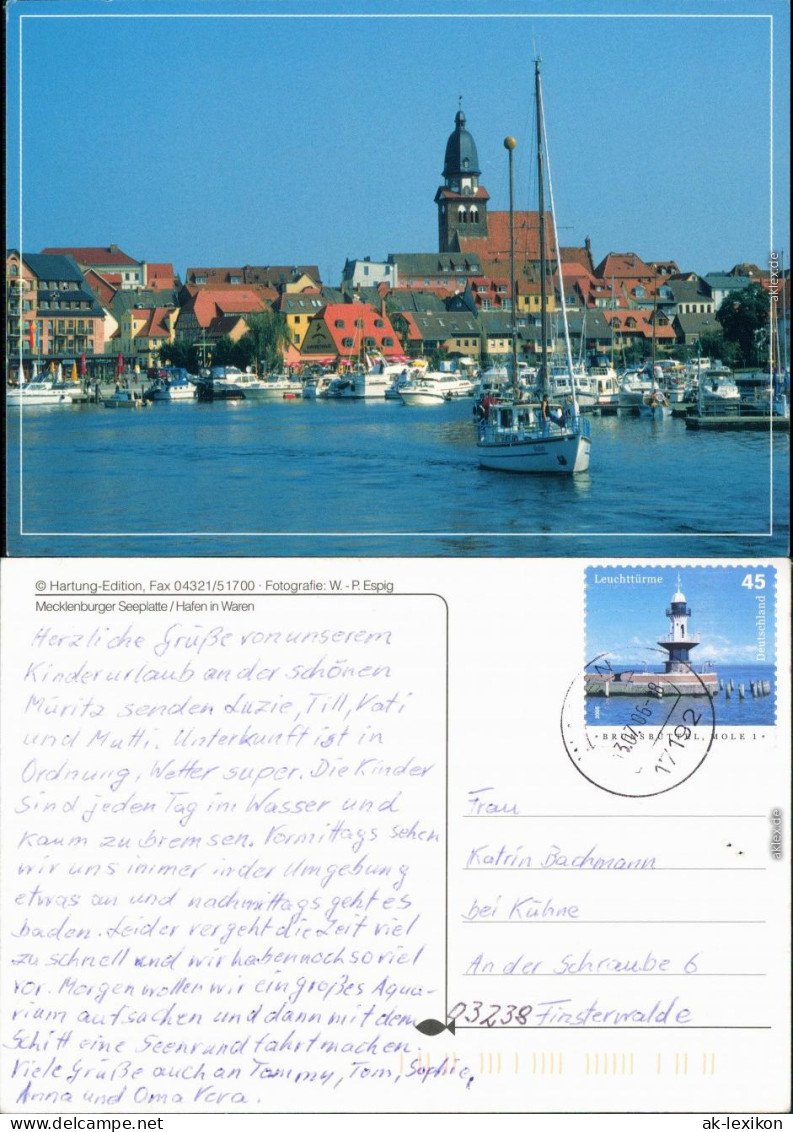 aklex.de
© Hartung-Edition, Fax 04321/51700 · Fotografie: W.-P. Espig
Mecklenburger Seeplatte/Hafen in Waren
Herzliche Grüße von unserem
Kinderurlaub an der schönen
Müritz senden Luzie, Till, Vati
und Mutti. Unterkunft ist in
Ordnung, Wetter super. Die Kinder
sind jeden Tag im Wasser und
kaum zu bremsen. Vormittags sehen
wir uns immer in der Umgebung
etwas an und nachmittags geht es
baden. Leider vergeht die Zeit viel
zu schnell und wir haben noch so viel
vor. Morgen wollen wir ein großes Aqua-
rium aufsuchen und dann mit dem
Schiff eine Seenrundfahrt machen.
Viele Grüße auch an Tommy, Tom, Sophie,
Anna und Oma Vera.
Leuchttürme 45
Deutschland
BRUNSBÜTTEL, MOLE 1
13.07.06-18
17192
Frau
Katrin Bachmann
bei Kühne
An der Schraube 6
03238 Finsterwalde
aklex.de
ak-lexikon